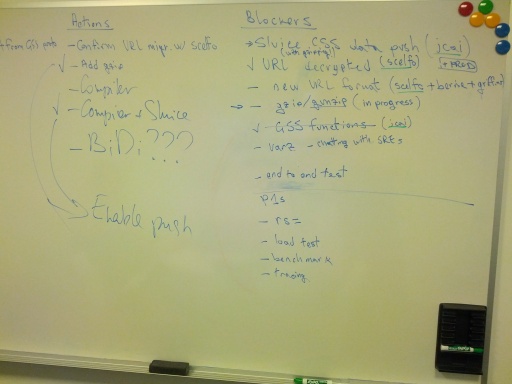 Actions
- Confirm URL migr. w/ scelfo
- Add gzip
- Compiler
- Compiler + Sluice
- BiDi???
Enable push
Blockers
Sluice CSS data push (jcai)
√ URL decrypted (scelfo)
- new URL format (scelfo +
- gzip/gunzip (in progress)
√ - GSS functions - (jcai)
- varz - chatting with SREs
- end to end test
P1s
- rs=
- load test
- benchmark
- tracing